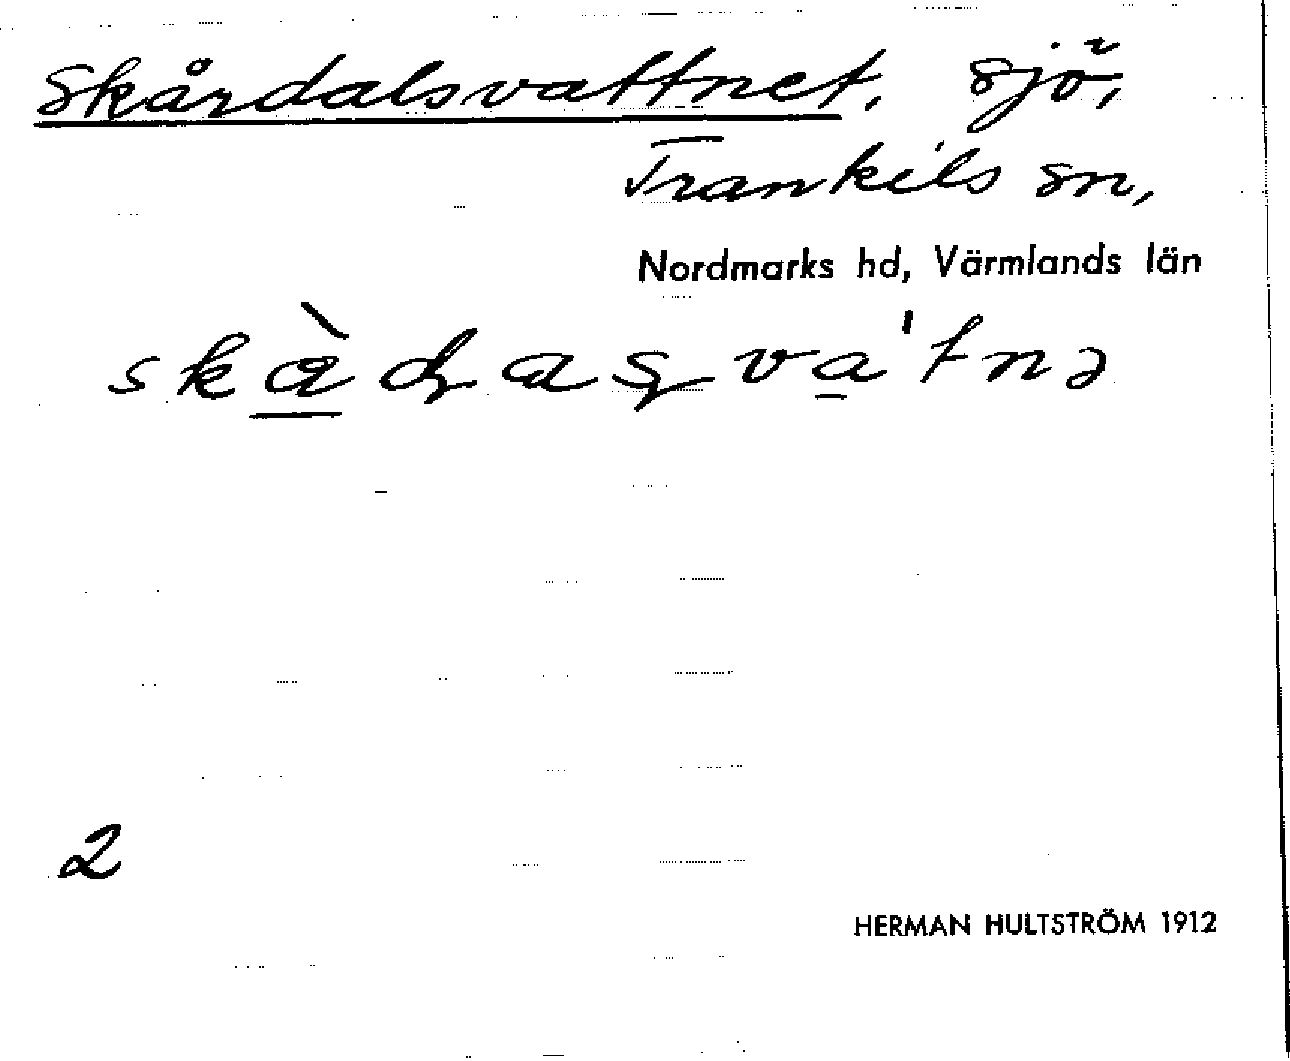 Skårdalsvattnet, sjö,
Trankils sn,
Nordmarks hd, Värmlands län
skàɖaʂva̠'tnə
2
HERMAN HULTSTRÖM 1912